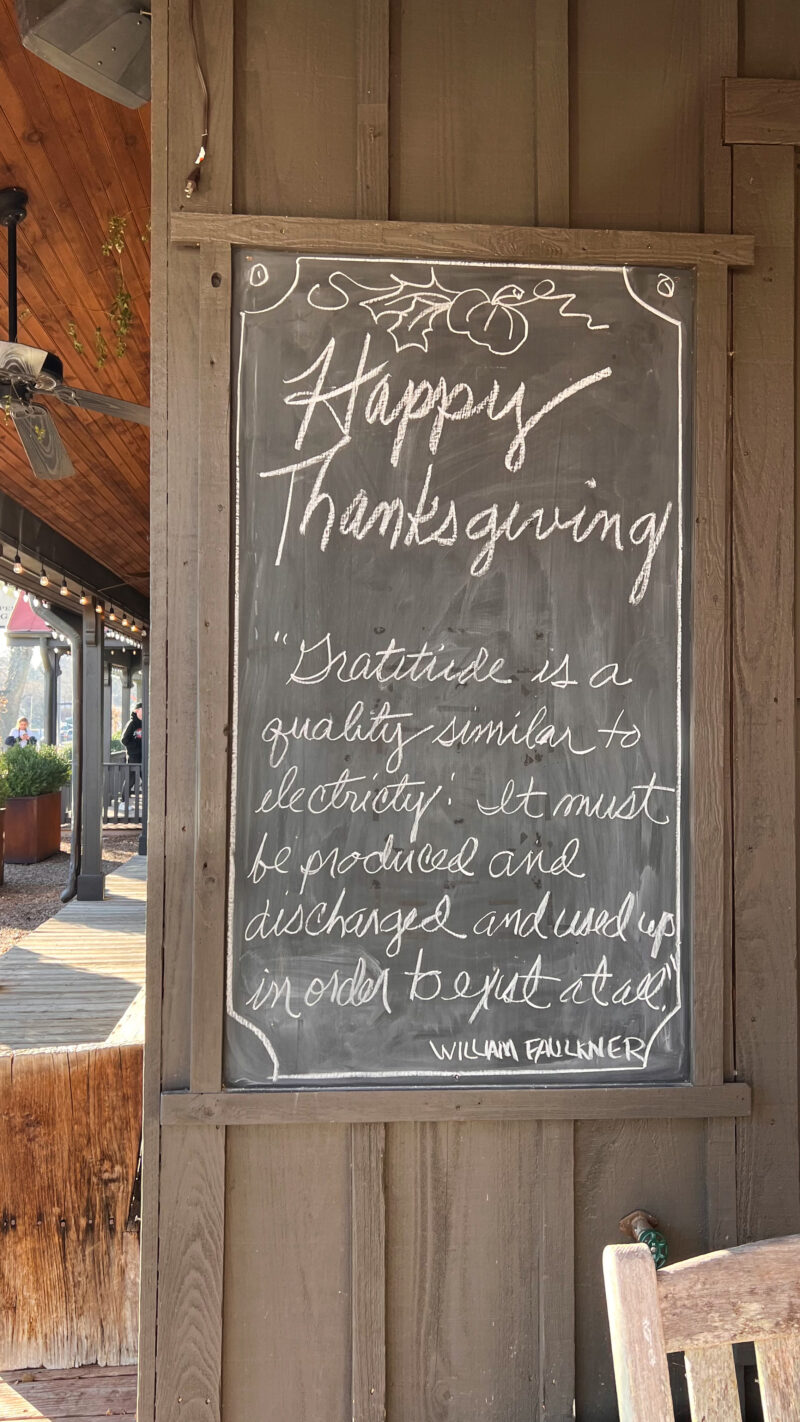 Happy
Thanksgiving
"Gratitude is a
quality similar to
electricty: It must
be produced and
discharged and used up
in order to exist at all."
WILLIAM FAULKNER